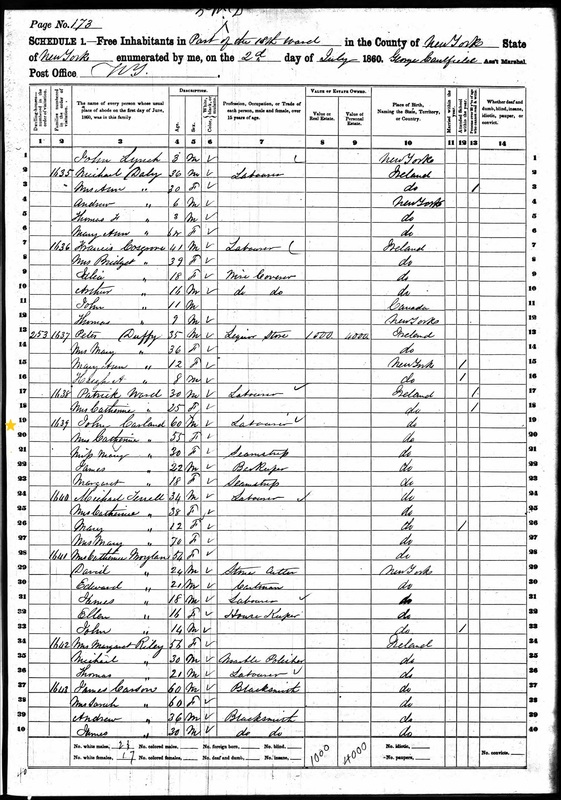 Page No. 173
SCHEDULE 1.—Free Inhabitants in Part of the 18th Ward in the County of New York State
of New York enumerated by me, on the 2d day of July 1860. George Caulfield Ass't Marshal.
Post Office N.Y.
Dwelling-houses numbered in the order of visitation.
Families numbered in the order of visitation.
The name of every person whose usual place of abode on the first day of June, 1860, was in this family
DESCRIPTION.
Age.
Sex.
Color,
Profession, Occupation, or Trade of each person, male and female, over 15 years of age.
VALUE OF ESTATE OWNED.
Value of Real Estate.
Value of Personal Estate.
Place of Birth, Naming the State, Territory, or Country.
Married within the year.
Attended School within the year.
Whether deaf and dumb, blind, insane, idiotic, pauper, or convict.
1 2 3 4 5 6 7 8 9 10 11 12 13 14
1 John Lynch 3 M New York 1
2 1635 Michael Daly 36 M Labourer Ireland 2
3 Mrs Ann " 30 F do 1 3
4 Andrew " 6 M New York 4
5 Thomas " 3 M do 5
6 Mary Ann " F do 6
7 1636 Francis Cosgrove 41 M Labourer Ireland 7
8 Mrs Bridget " 39 F do 8
9 " 18 F Wire Coverer do 9
10 Arthur " 16 M do do do 10
11 John " 11 M Canada 11
12 Thomas " 9 M New York 12
13 253 1637 Peter Duffy 35 M Liquor Store 1000 4000 Ireland 13
14 Mrs Mary " 36 F do 14
15 Mary Ann " 12 F New York 1 15
16 Hugh A " 8 M do 1 16
17 1638 Patrick Ward 30 M Labourer Ireland 1 17
18 Mrs Catherine " 25 F do 1 18
19 1639 John Carland 60 M Labourer do 19
20 Mrs Catherine " 55 F do 20
21 Miss Mary " 30 F Seamstress do 21
22 James " 22 M Barkeeper do 22
23 Margaret " 18 F Seamstress do 23
24 1640 Michael 34 M Labourer do 24
25 Mrs Catherine " 38 F do 25
26 Mary " 12 F do 1 26
27 Mrs Mary " 70 F do 27
28 1641 Mrs Catherine 54 F do 28
29 David " 24 M Stone Cutter New York 29
30 Edward " 21 M Cartman do 30
31 James " 18 M Labourer do 31
32 Ellen " 16 F House Keeper do 32
33 John " 14 M do 1 33
34 1642 Mrs Margaret Riley 56 F Ireland 34
35 Michael " 30 M Marble Polisher do 35
36 Thomas " 21 M Labourer do 36
37 1643 James Carson 60 M Blacksmith do 37
38 Mrs Sarah " 60 F do 38
39 Andrew " 36 M Blacksmith do 39
40 James " 30 M do do do 40
No. white males, 23 No. colored males, No. foreign born, No. blind, 1000 4000 No. idiotic, No. convicts,
No. white females, 17 No. colored females, No. deaf and dumb, No. insane, No. paupers,